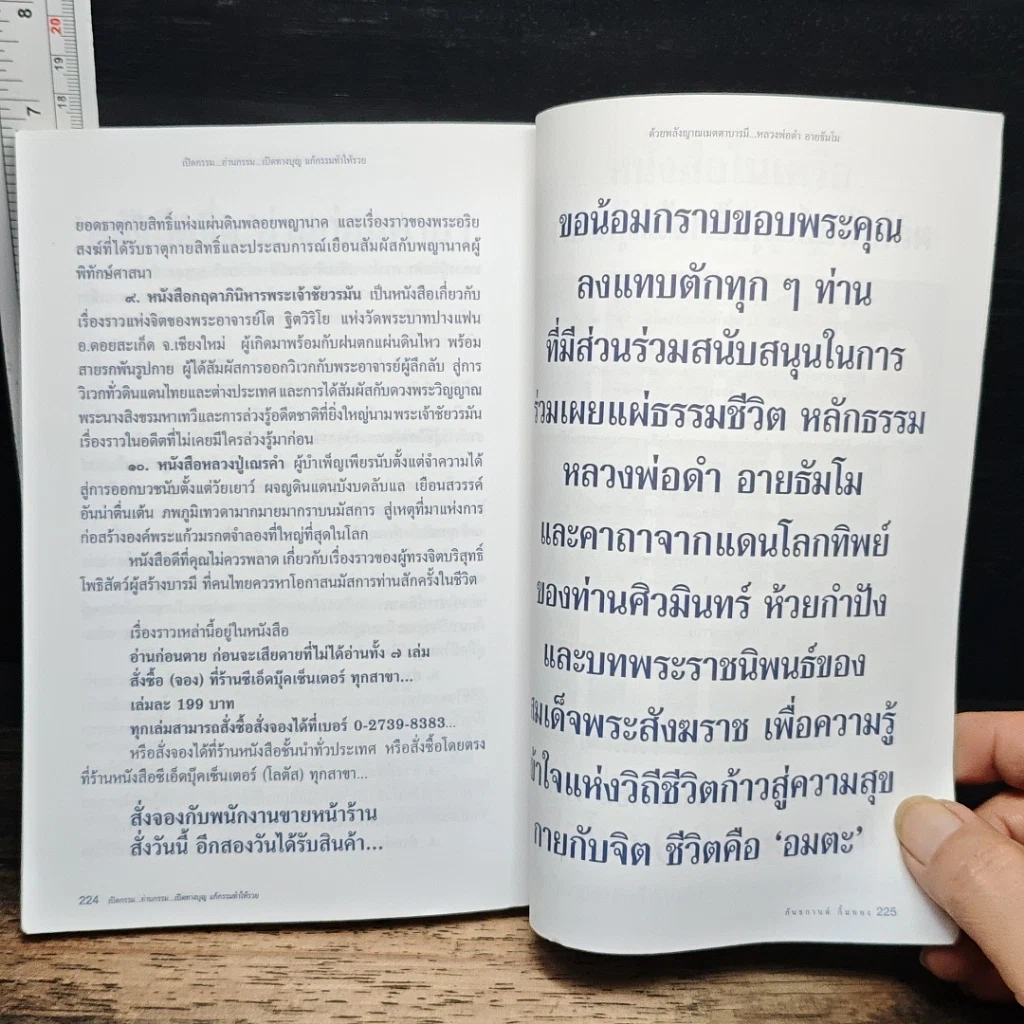 เปิดกรรม...อ่านกรรม...เปิดทางบุญ แก้กรรมทำให้รวย
ยอดธาตุกายสิทธิ์แห่งแผ่นดินพลอยพญานาค และเรื่องราวของพระอริย
สงฆ์ที่ได้รับธาตุกายสิทธิ์และประสบการณ์เยือนสัมผัสกับพญานาคผู้
พิทักษ์ศาสนา
๙. หนังสือกฤดาภินิหารพระเจ้าชัยวรมัน เป็นหนังสือเกี่ยวกับ
เรื่องราวแห่งจิตของพระอาจารย์โต ฐิตวิริโย แห่งวัดพระบาทปางแฟน
อ.ดอยสะเก็ด จ.เชียงใหม่ ผู้เกิดมาพร้อมกับฝนตกแผ่นดินไหว พร้อม
สายรกพันรูปกาย ผู้ได้สัมผัสการออกวิเวกกับพระอาจารย์ผู้ลึกลับ สู่การ
วิเวกทั่วดินแดนไทยและต่างประเทศ และการได้สัมผัสกับดวงพระวิญญาณ
พระนางสิงขรมหาเทวีและการล่วงรู้อดีตชาติที่ยิ่งใหญ่นามพระเจ้าชัยวรมัน
เรื่องราวในอดีตที่ไม่เคยมีใครล่วงรู้มาก่อน
๑๐. หนังสือหลวงปู่เณรคำ ผู้บำเพ็ญเพียรนับตั้งแต่จำความได้
สู่การออกบวชนับตั้งแต่วัยเยาว์ ผจญดินแดนบังบดลับแล เยือนสวรรค์
อันน่าตื่นเต้น ภพภูมิเทวดามากมายมากราบนมัสการ สู่เหตุที่มาแห่งการ
ก่อสร้างองค์พระแก้วมรกตจำลองที่ใหญ่ที่สุดในโลก
หนังสือดีที่คุณไม่ควรพลาด เกี่ยวกับเรื่องราวของผู้ทรงจิตบริสุทธิ์
โพธิสัตว์ผู้สร้างบารมี ที่คนไทยควรหาโอกาสนมัสการท่านสักครั้งในชีวิต
เรื่องราวเหล่านี้อยู่ในหนังสือ
อ่านก่อนตาย ก่อนจะเสียดายที่ไม่ได้อ่านทั้ง ๗ เล่ม
สั่งซื้อ (จอง) ที่ร้านซีเอ็ดบุ๊คเซ็นเตอร์ ทุกสาขา...
เล่มละ 199 บาท
ทุกเล่มสามารถสั่งซื้อสั่งจองได้ที่เบอร์ 0-2739-8383...
หรือสั่งจองได้ที่ร้านหนังสือชั้นนำทั่วประเทศ หรือสั่งซื้อโดยตรง
ที่ร้านหนังสือซีเอ็ดบุ๊คเซ็นเตอร์ (โลตัส) ทุกสาขา...
สั่งจองกับพนักงานขายหน้าร้าน
สั่งวันนี้ อีกสองวันได้รับสินค้า...
224 เปิดกรรม...อ่านกรรม...เปิดทางบุญ แก้กรรมทำให้รวย
ด้วยพลังญาณเมตตาบารมี...หลวงพ่อดำ อายธัมโม
ขอน้อมกราบขอบพระคุณ
ลงแทบตักทุก ๆ ท่าน
ที่มีส่วนร่วมสนับสนุนในการ
ร่วมเผยแผ่ธรรมชีวิต หลักธรรม
หลวงพ่อดำ อายธัมโม
และคาถาจากแดนโลกทิพย์
ของท่านศิวมินทร์ ห้วยกำปัง
และบทพระราชนิพนธ์ของ
สมเด็จพระสังฆราช เพื่อความรู้
เข้าใจแห่งวิถีชีวิตก้าวสู่ความสุข
กายกับจิต ชีวิตคือ ‘อมตะ’
225
8
7
20
19
18